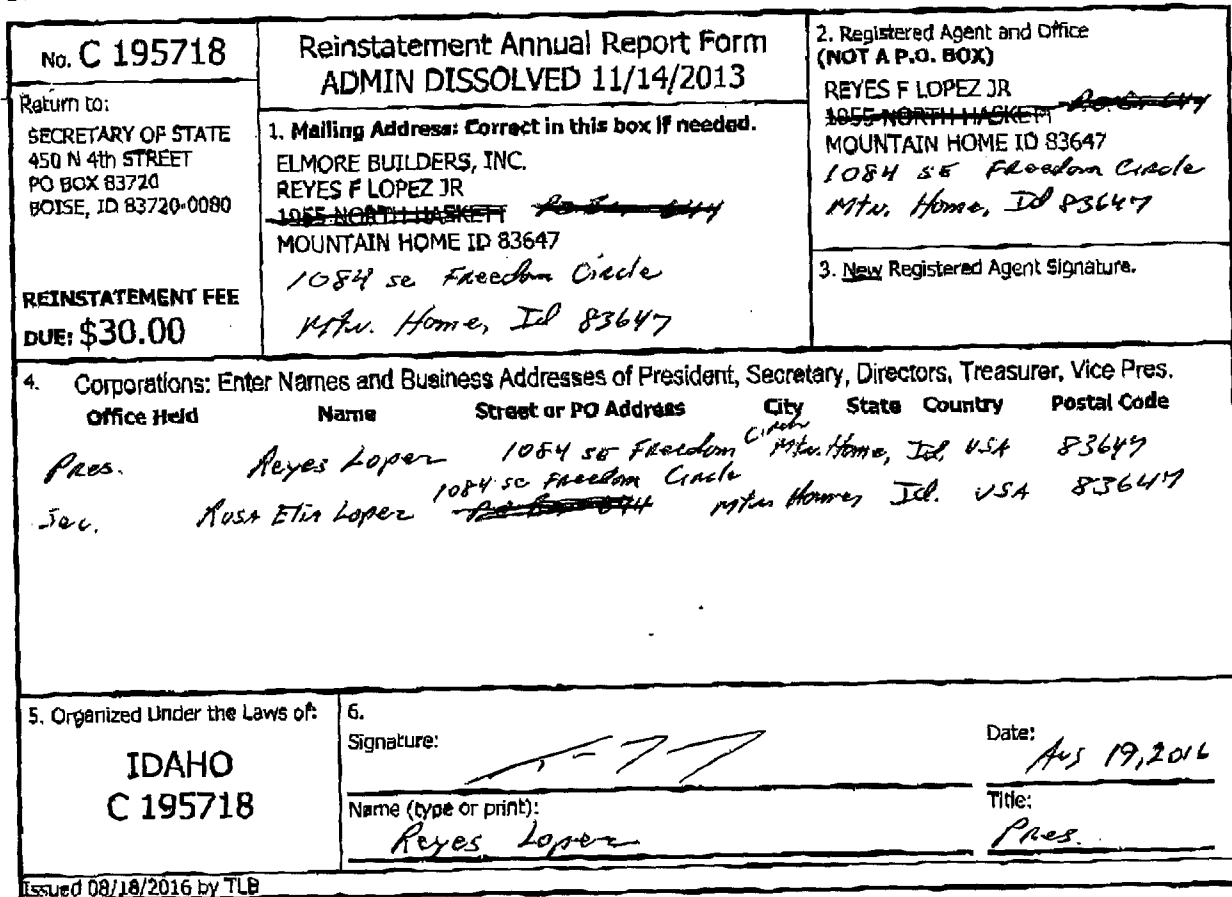 No. C 195718
Return to:
SECRETARY OF STATE
450 N 4th STREET
PO BOX 83720
BOISE, ID 83720-0080
REINSTATEMENT FEE
DUE: $30.00
Reinstatement Annual Report Form
ADMIN DISSOLVED 11/14/2013
1. Mailing Address: Correct in this box if needed.
ELMORE BUILDERS, INC.
REYES F LOPEZ JR
1055 NORTH HASKETT PO Box 644
MOUNTAIN HOME ID 83647
1084 se Freedom Circle
Mtn. Home, Id 83647
2. Registered Agent and Office
(NOT A P.O. BOX)
REYES F LOPEZ JR
1055 NORTH HASKETT P.O. Box 644
MOUNTAIN HOME ID 83647
1084 SE Freedom Circle
Mtn. Home, Id 83647
3. New Registered Agent Signature.
4. Corporations: Enter Names and Business Addresses of President, Secretary, Directors, Treasurer, Vice Pres.
Office Held Name Street or PO Address City State Country Postal Code
Pres. Reyes Lopez 1084 SE Freedom Circle Mtn. Home, Id. USA 83647
1084 SE Freedom Circle
Sec. Rosa Elia Lopez Mtn Home, Id. USA 83647
5. Organized Under the Laws of:
IDAHO
C 195718
6.
Signature:
Date: Aug 19, 2016
Name (type or print):
Reyes Lopez
Title:
Pres.
Issued 08/18/2016 by TLB